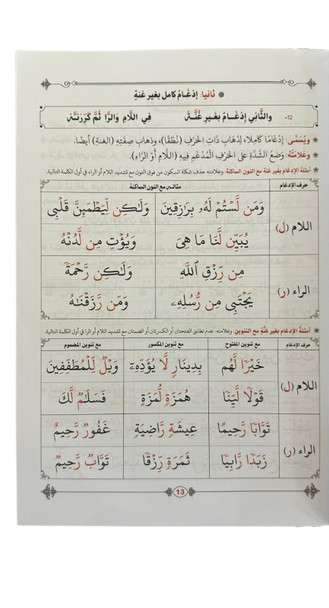 ثانيا: إدغام كامل بغير غنة
١٢- والثاني إدغام بغير غنة في اللام والرا ثم كررنه
ويسمى إدغاما كاملا، لذهاب ذات الحرف (نطقا)، وذهاب صفته (الغنة) أيضا.
وعلامته: وضع الشدة على الحرف المدغم فيه (اللام أو الراء).
أمثلة الإدغام بغير غنة مع النون الساكنة: وعلامته حذف شكلة السكون من فوق النون مع تشديد اللام أو الراء في أول الكلمة التالية.
حرف الإدغام مثاله مع النون الساكنة
اللام (ل) وَمَن لَّسْتُمْ لَهُۥ بِرَٰزِقِينَ وَلَٰكِن لِّيَطْمَئِنَّ قَلْبِى
يُبَيِّن لَّنَا مَا هِىَ وَيُؤْتِ مِن لَّدُنْهُ
الراء (ر) مِن رِّزْقِ ٱللَّهِ وَلَٰكِن رَّحْمَةً
يَجْتَبِى مِن رُّسُلِهِۦ وَمَن رَّزَقْنَٰهُ
أمثلة الإدغام بغير غنة مع التنوين: وعلامته: عدم تطابق الفتحتان أو الكسرتان أو الضمتان مع تشديد اللام أو الراء في أول الكلمة التالية.
حرف الإدغام مع تنوين المفتوح مع تنوين المكسور مع تنوين المضموم
اللام (ل) خَيْرًا لَّهُم بِدِينَارٍ لَّا يُؤَدِّهِۦٓ وَيْلٌ لِّلْمُطَفِّفِينَ
قَوْلًا لَّيِّنًا هُمَزَةٍ لُّمَزَةٍ فَسَلَٰمٌ لَّكَ
الراء (ر) تَوَّابًا رَّحِيمًا عِيشَةٍ رَّاضِيَةٍ غَفُورٌ رَّحِيمٌ
زَبَدًا رَّابِيًا ثَمَرَةٍ رِّزْقًا تَوَّابٌ رَّحِيمٌ
13